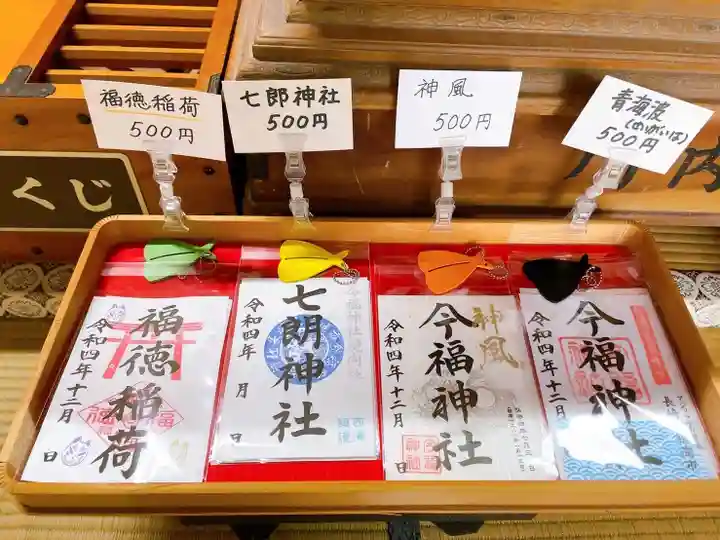 福徳稲荷
500円
七郎神社
500円
神風
500円
青海波
(せいがいは)
500円
くじ
内
福徳稲荷
令和四年十二月 日
七郎神社
令和四年 月 日
神風
今福神社
令和四年十二月 日
今福神社
令和四年十二月